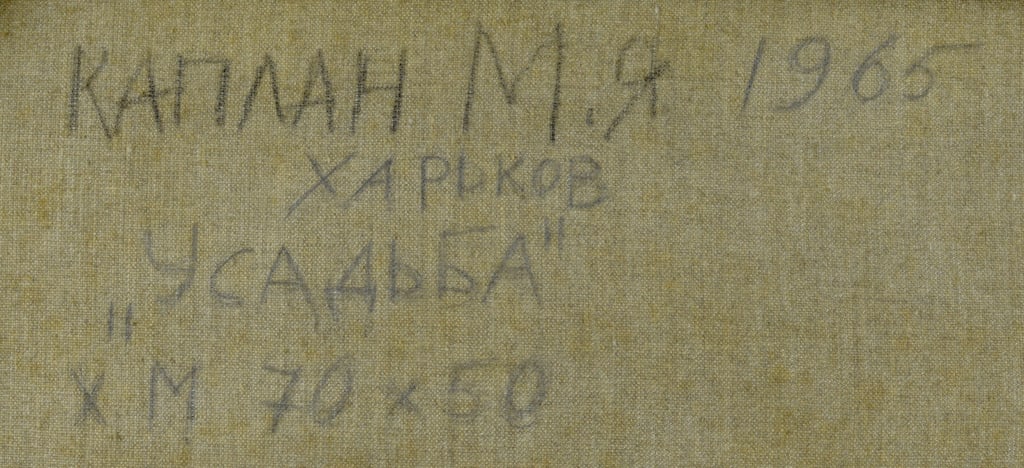 КАПЛАН М.Я 1965
ХАРЬКОВ
„УСАДЬБА"
х М 70 х 50